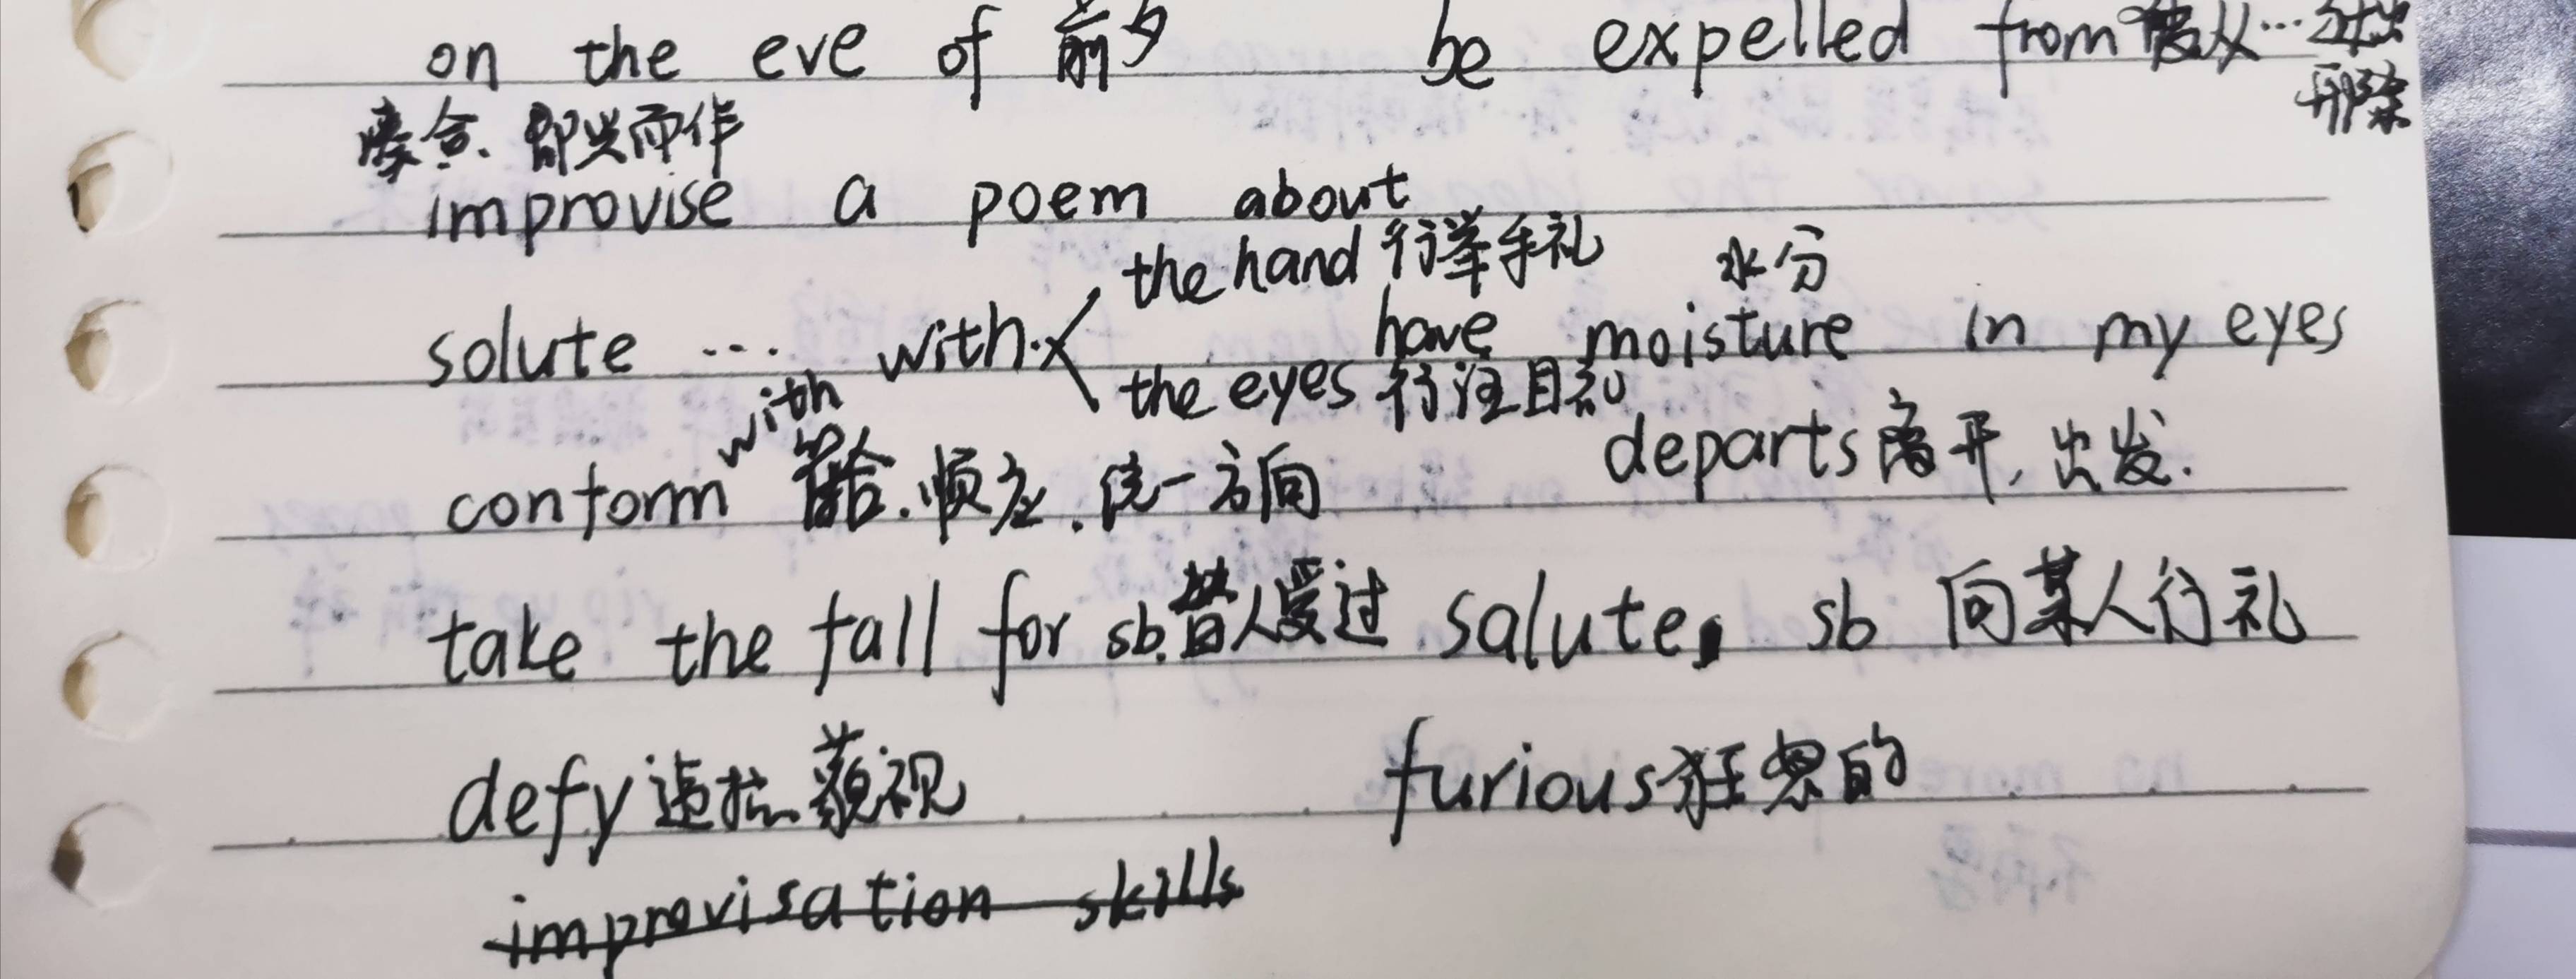 on the eve of 前夕 be expelled from 被从…
删除
即兴而作
improvise a poem about
the hand 行举手礼 水分
solute ... with have moisture in my eyes
the eyes 行注目礼
with
conform 符合.顺应.统一方向 departs 离开,出发.
take the fall for sb.替人受过 salute sb 向某人行礼
defy 违抗 藐视 furious 狂怒的
improvisation skills